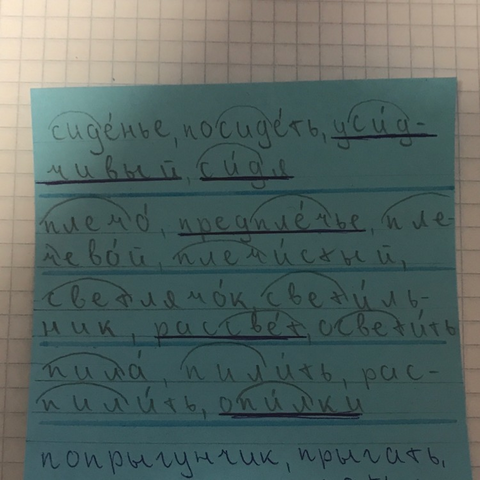 сиде́нье, посиде́ть, уси́д-
чивый, си́дя
плечо́, предпле́чье, пле-
чево́й, плечи́стый,
светлячо́к свети́ль-
ник, рассве́т, освети́ть
пила́, пили́ть, рас-
пили́ть, опи́лки
попрыгунчик, прыгать,